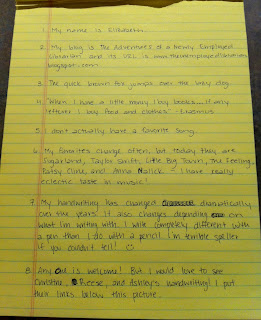 1. My name is Elizabeth.
2. My blog is The Adventures of a Newly Employed
Librarian and its URL is www.thenewlyemployedlibrarian.
blogspot.com
3. The quick brown fox jumps over the lazy dog.
4. When I have a little money I buy books... if any
leftover I buy food and clothes. -Erasmus
5. I don't actually have a favorite song.
6. My favorites change often, but today they are
Sugarland, Taylor Swift, Little Big Town, The Feeling,
Patsy Cline, and Anna Nalick. I have really
eclectic taste in music!
7. My handwriting has changed dramatically
over the years. It also changes depending on
what I'm writing with. I write completely different with
a pen than I do with a pencil. I'm terrible speller
if you couldn't tell!
8. Any one is welcome! But I would love to see
Christina, Reese, and Ashley's handwriting! I put
their links below this picture.